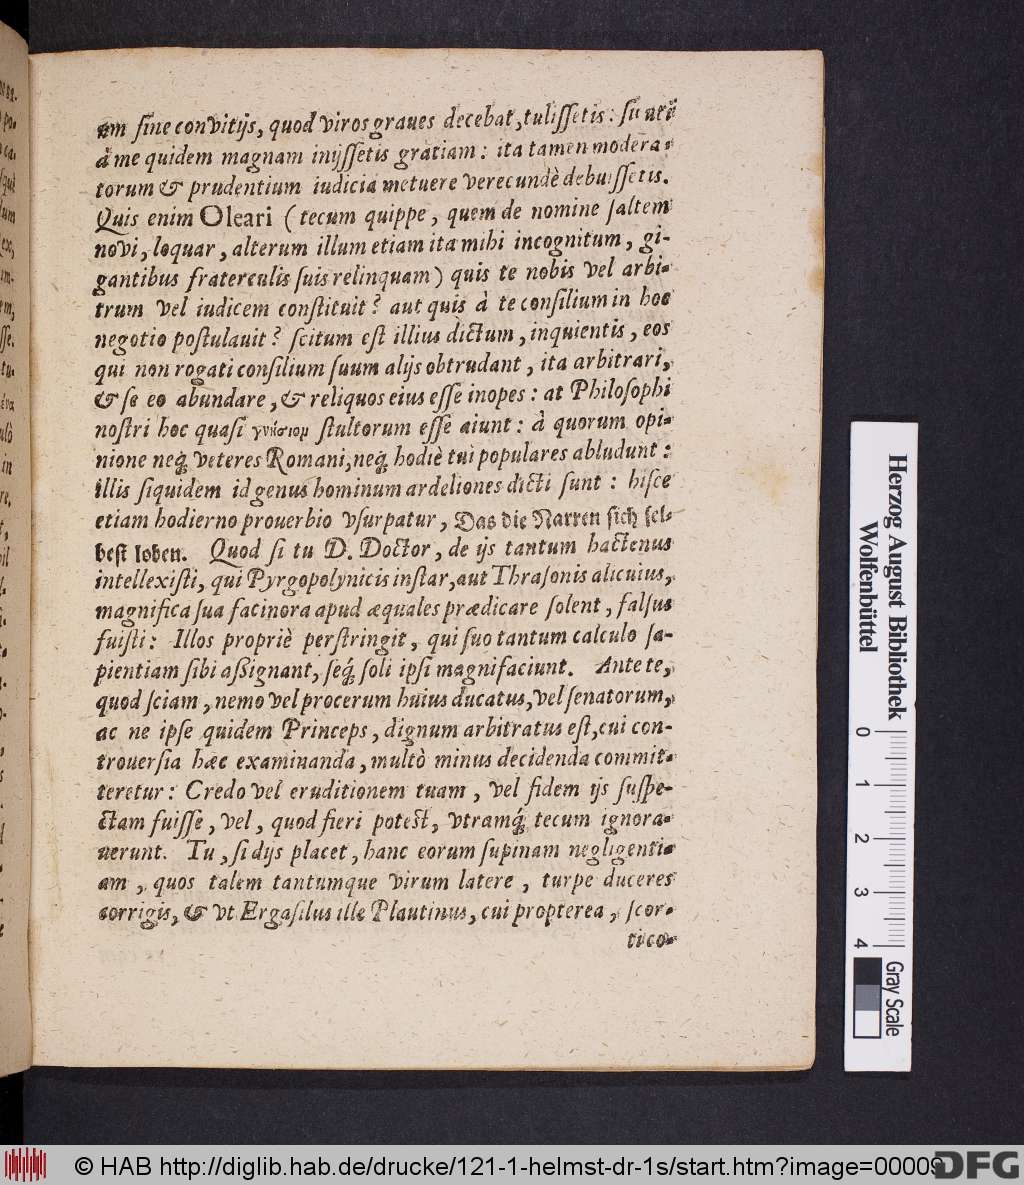 am ſine convitijs, quod viros graues decebat, tuliſſetis: ſi uti
à me quidem magnam inijſſetis gratiam: ita tamen modera-
torum & prudentium iudicia metuere verecundè debuiſſetis.
Quis enim Oleari (tecum quippe, quem de nomine ſaltem
novi, loquar, alterum illum etiam ita mihi incognitum, gi-
gantibus fraterculis ſuis relinquam) quis te nobis vel arbi-
trum vel iudicem conſtituit? aut quis à te conſilium in hoc
negotio poſtulauit? ſcitum eſt illius dictum, inquientis, eos
qui non rogati conſilium ſuum alijs obtrudant, ita arbitrari,
& ſe eo abundare, & reliquos eius eſſe inopes: at Philoſophi
noſtri hoc quaſi γνήσιομ ſtultorum eſſe aiunt: à quorum opi-
nione neq́; veteres Romani, neq́; hodiè tui populares abludunt:
illis ſiquidem id genus hominum ardeliones dicti ſunt: hiſce
etiam hodierno prouerbio vſurpatur, Das die Narren ſich ſel-
beſt loben. Quod ſi tu D. Doctor, de ijs tantum hactenus
intellexiſti, qui Pyrgopolynicis inſtar, aut Thraſonis alicuius,
magnifica ſua facinora apud æquales prædicare ſolent, falſus
fuiſti: Illos propriè perſtringit, qui ſuo tantum calculo ſa-
pientiam ſibi aßignant, ſeq́; ſoli ipſi magnifaciunt. Ante te,
quod ſciam, nemo vel procerum huius ducatus, vel ſenatorum,
ac ne ipſe quidem Princeps, dignum arbitratus eſt, cui con-
trouerſia hæc examinanda, multò minus decidenda commit-
teretur: Credo vel eruditionem tuam, vel fidem ijs ſuſpe-
ctam fuiſſe, vel, quod fieri poteſt, vtramq́; tecum ignora-
uerunt. Tu, ſi dijs placet, hanc eorum ſupinam negligenti-
am, quos talem tantumque virum latere, turpe duceres
corrigis, & vt Ergaſilus ille Plautinus, cui propterea, ſcor-
tico-
Herzog August Bibliothek
Wolfenbüttel
0 1 2 3 4
Gray Scale
© HAB http://diglib.hab.de/drucke/121-1-helmst-dr-1s/start.htm?image=00009
DFG